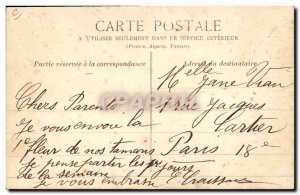 CARTE POSTALE
A UTILISER SEULEMENT DANS LE SERVICE INTÉRIEUR
(France, Algérie, Tunisie)
Partie réservée à la correspondance
Adresse du destinataire
Melle
Jane
Chers Parents
4 rue Jacques
Je vous envoi la
Cartier
1e fleur de nos tamaris
Paris 18e
je pense partir les 1er jours
de la semaine
je vous embrasse